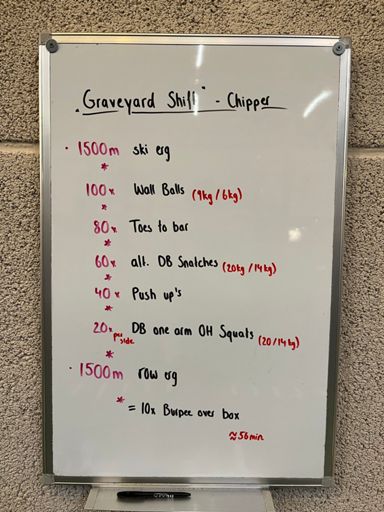 "Graveyard Shift" - Chipper
• 1500m ski erg
*
100x Wall Balls (9kg / 6kg)
*
80x Toes to bar
*
60x alt. DB Snatches (20kg / 14kg)
*
40x Push up's
*
20x per side DB one arm OH Squats (20 / 14kg)
*
• 1500m row erg
* = 10x Burpee over box
≈ 56min